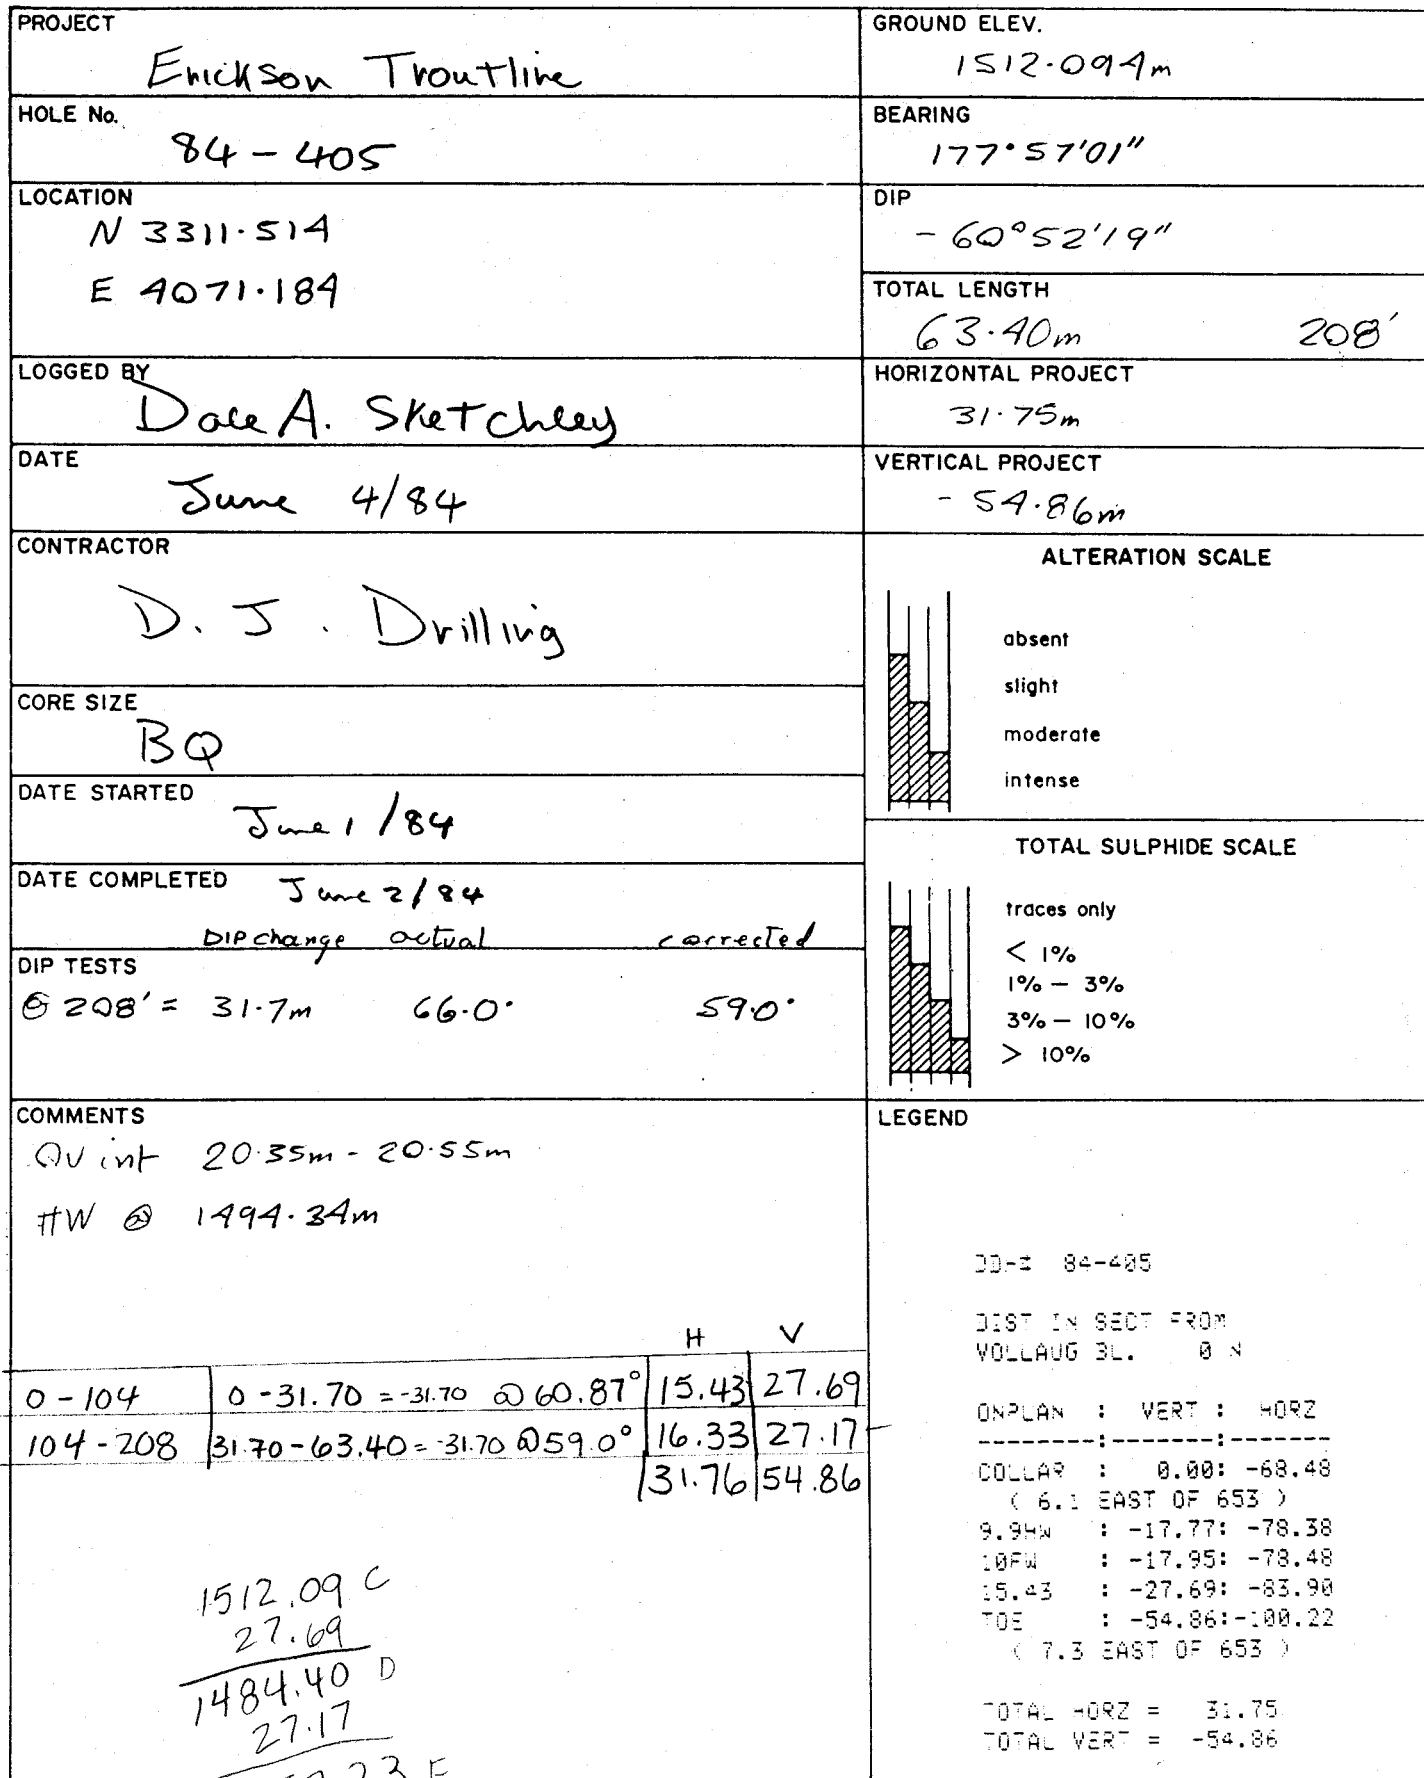 PROJECT
Erickson Troutline
HOLE No.
84-405
LOCATION
N 3311.514
E 4071.184
LOGGED BY
Dale A. Sketchley
DATE
June 4/84
CONTRACTOR
D. J. Drilling
CORE SIZE
BQ
DATE STARTED
June 1/84
DATE COMPLETED June 2/84
DIP change actual corrected
DIP TESTS
@ 208' = 31.7m 66.0° 59.0°
COMMENTS
QV int 20.35m - 20.55m
HW @ 1494.34m
H V
0-104 0-31.70 = -31.70 @ 60.87° 15.43 27.69
104-208 31.70-63.40 = -31.70 @ 59.0° 16.33 27.17
31.76 54.86
1512.09 C
27.69
1484.40 D
27.17
GROUND ELEV.
1512.094m
BEARING
177°57'01"
DIP
-60°52'19"
TOTAL LENGTH
63.40m 208'
HORIZONTAL PROJECT
31.75m
VERTICAL PROJECT
-54.86m
ALTERATION SCALE
absent
slight
moderate
intense
TOTAL SULPHIDE SCALE
traces only
< 1%
1% - 3%
3% - 10%
> 10%
LEGEND
DD-# 84-405
DIST IN SECT FROM
VOLLAUG BL. 0 N
ONPLAN : VERT : HORZ
--------:-------:-------
COLLAR : 0.00: -68.48
( 6.1 EAST OF 653 )
9.9HW : -17.77: -78.38
10FW : -17.95: -78.48
15.43 : -27.69: -83.90
TOE : -54.86:-100.22
( 7.3 EAST OF 653 )
TOTAL HORZ = 31.75
TOTAL VERT = -54.86